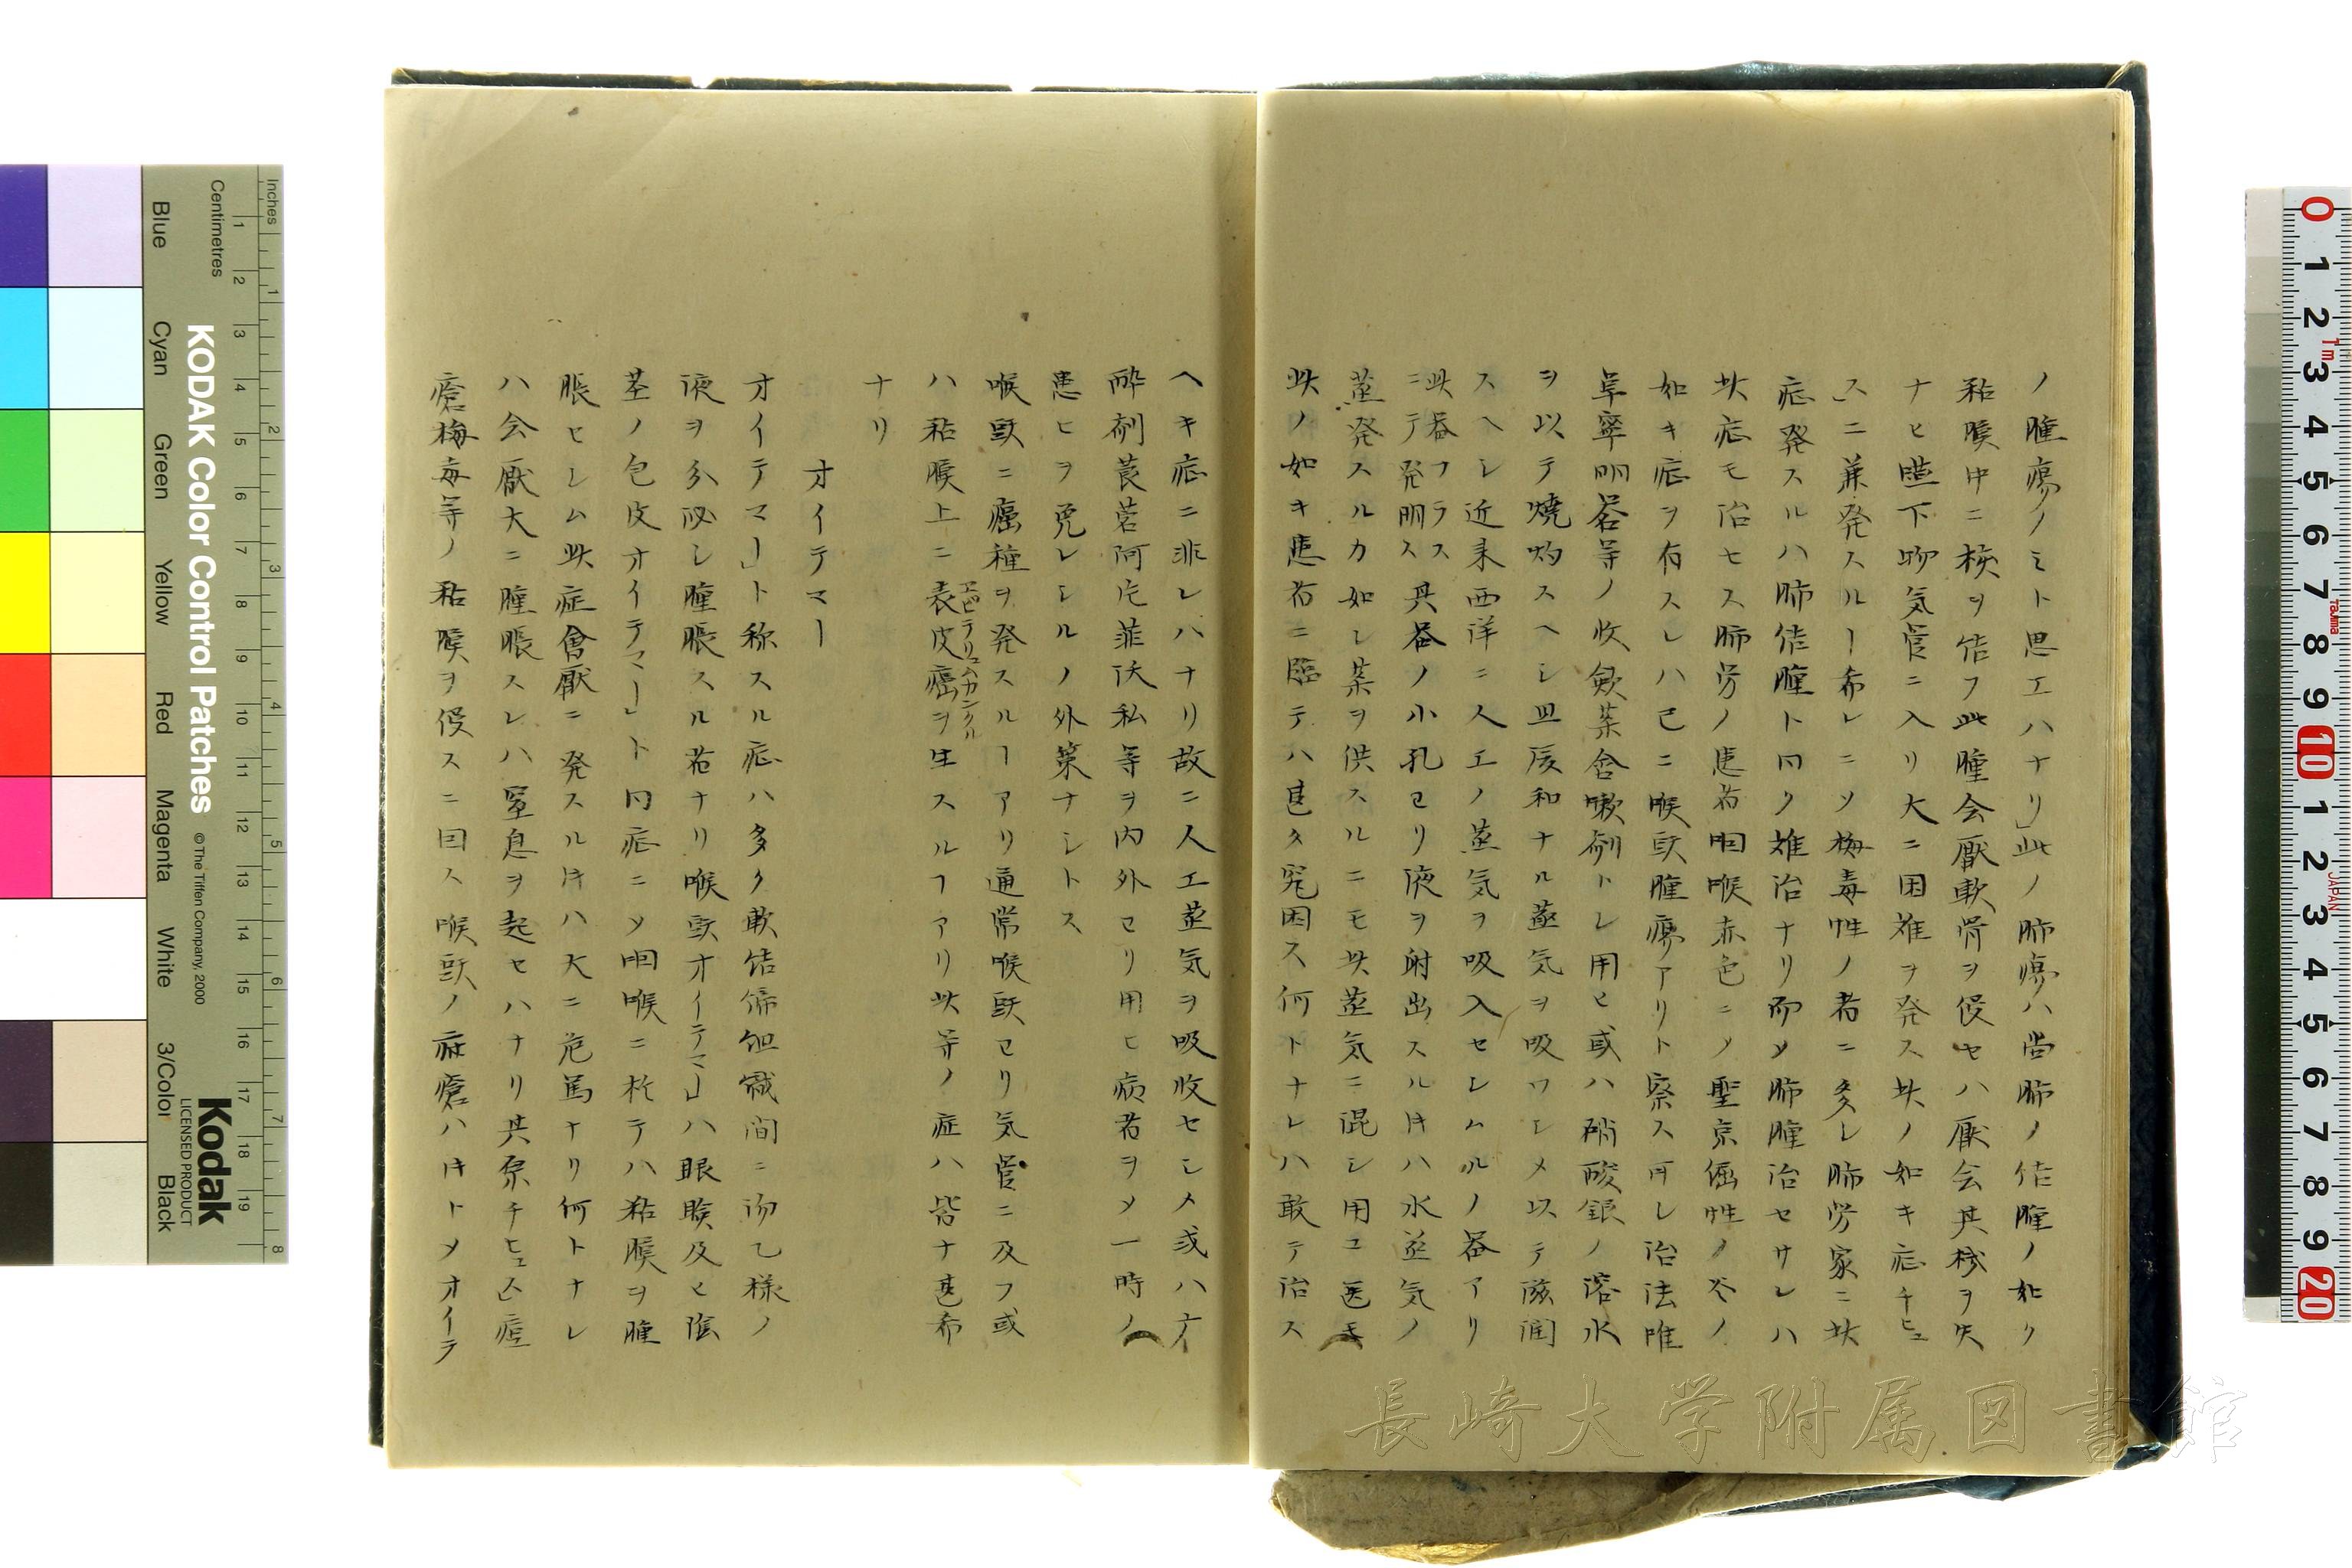 ノ腫瘍ノミト思エハナリ」此ノ肺瘍ハ尚肺ノ結腫ノ如ク
粘膜中ニ核ヲ結フ此腫会厭軟骨ヲ侵セハ厭会其機ヲ失
ナヒ嚥下物気管ニ入リ大ニ困難ヲ発ス此ノ如キ症チヒュ
ス」ニ兼発スルー希レニソ梅毒性ノ者ニ多シ肺労家ニ此
症発スルハ肺結腫ト同ク難治ナリ而メ肺腫治セサレハ
此症モ治セス肺労ノ患者咽喉赤色ニソ聖京倔性ノ
如キ症ヲ有スレハ已ニ喉頭腫瘍アリト察ス可レ治法唯
単寧明礬等ノ收斂薬含嗽剤トレ用ヒ或ハ硝酸銀ノ溶水
ヲ以テ焼灼スヘシ且緩和ナル蒸気ヲ吸ワシメ以テ滋潤
スヘシ近来西洋ニ人工ノ蒸気ヲ吸入セシムルノ器アリ
此器フラス
ニテ発明ス其器ノ小孔ヨリ液ヲ射出スル㕝ハ水蒸気ノ
蒸発スルカ如シ薬ヲ供スルニモ此蒸気ニ混シ用ユ医モ
此ノ如キ患者ニ臨テハ甚タ窮困ス何トナレハ敢テ治ス
ヘキ症ニ非レハナリ故ニ人工蒸気ヲ吸收セシメ或ハ
酔剤莨菪阿片菲沃私等ヲ内外ヨリ用ヒ病者ヲメ一時ノ
患ヒヲ免レシルノ外策ナシトス
喉頭ニ癌種ヲ発スルーアリ通常喉頭ヨリ気管ニ及フ或
ハ粘膜上ニ表皮癌ヲ生スルフアリ此等ノ症ハ皆ナ甚希
エピテリュムカンクル
ナリ
オイテマー
オイテマー」ト称スル症ハ多ク軟結締組織間ニ沕乙様ノ
液ヲ分泌シ腫脹スル者ナリ喉頭オイテマー」ハ眼瞼及ヒ陰
茎ノ包皮オイテマー」ト同症ニソ咽喉ニ於テハ粘膜ヲ腫
脹セシム此症會厭ニ発スル㕝ハ大ニ危篤ナリ何トナレ
ハ会厭大ニ腫脹スレハ窒息ヲ起セハナリ其原チヒュス痘
瘡梅毒等ノ粘膜ヲ侵スニ因ス喉頭ノ麻瘡ハ㕝トメオイテ
KODAK Color Control Patches
© The Tiffen Company, 2000
Kodak
LICENSED PRODUCT
Inches
Centimetres
Blue
Cyan
Green
Yellow
Red
Magenta
White
3/Color
Black
長崎大学附属図書館